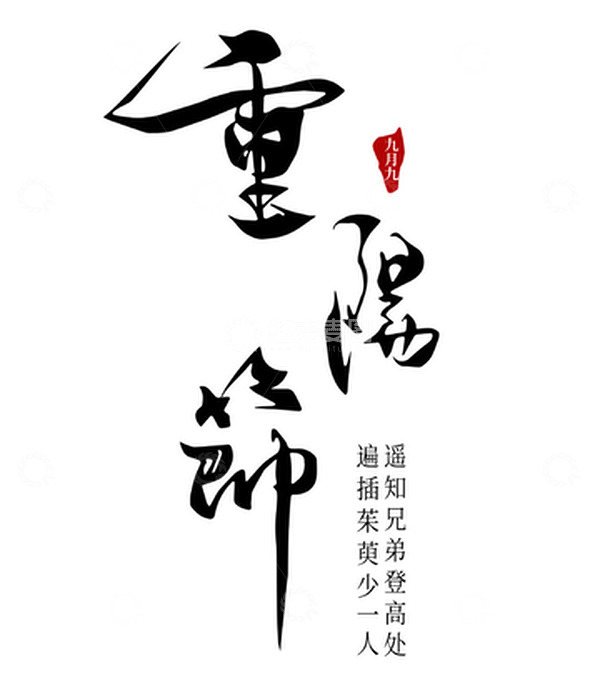 重陽節
九月九
遥知兄弟登高处
遍插茱萸少一人